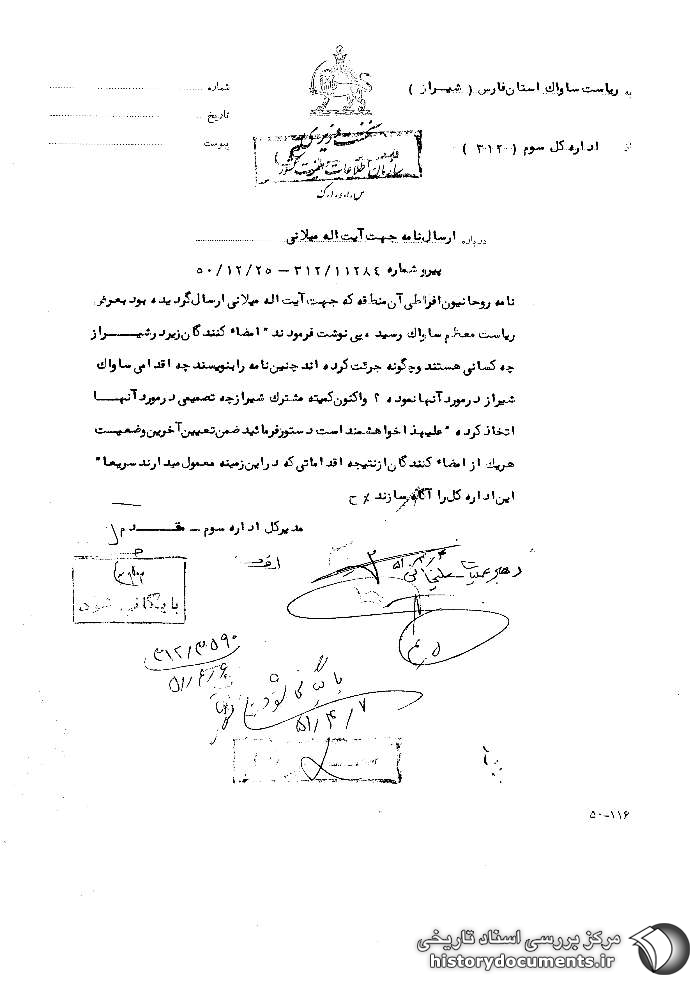 به ریاست ساواک استان فارس ( شیراز )
شماره
تاریخ
از اداره کل سوم ( ۳۱۲ )
پیوست
نخست وزیری
سازمان اطلاعات و امنیت کشور
س.ا.و.ا.ک
درباره ارسال نامه جهت آیت اله میلانی
پیرو شماره ۳۱۲/۱۱۲۸۴ – ۵۰/۱۲/۲۵
نامه روحانیون افراطی آن منطقه که جهت آیت اله میلانی ارسال گردیده بود بعرض
ریاست معظم ساواک رسیده پی نوشت فرمودند " امضاء کنندگان زیر در شیراز
چه کسانی هستند و چگونه جرئت کرده اند چنین نامه را بنویسند چه اقدامی ساواک
شیراز در مورد آنها نموده ؟ واکنون کمیته مشترک شیراز چه تصمیمی در مورد آنها
اتخاذ کرده " علیهذا خواهشمند است دستور فرمائید ضمن تعیین آخرین وضعیت
هریک از امضاء کنندگان از نتیجه اقداماتی که در این زمینه معمول میدارند سریعا"
این اداره کل را آگاه سازند ٪ ح
مدیر کل اداره سوم – مقدم
رهبر عملیات
بایگانی شود
۳۱۲/۳۵۹۰
۵۱/۴/۶
بایگانی شود
۵۱/۴/۷
۵۰-۱۱۶
مرکز بررسی اسناد تاریخی
historydocuments.ir